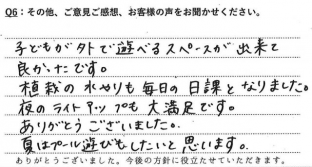 Q6：その他、ご意見ご感想、お客様の声をお聞かせください。
子どもが外で遊べるスペースが出来て
良かったです。
植栽の水やりも毎日の日課となりました。
夜のライトアップも大満足です。
ありがとうございました。
夏はプール遊びもしたいと思います。
ありがとうございました。今後の方針に役立たせていただきます。